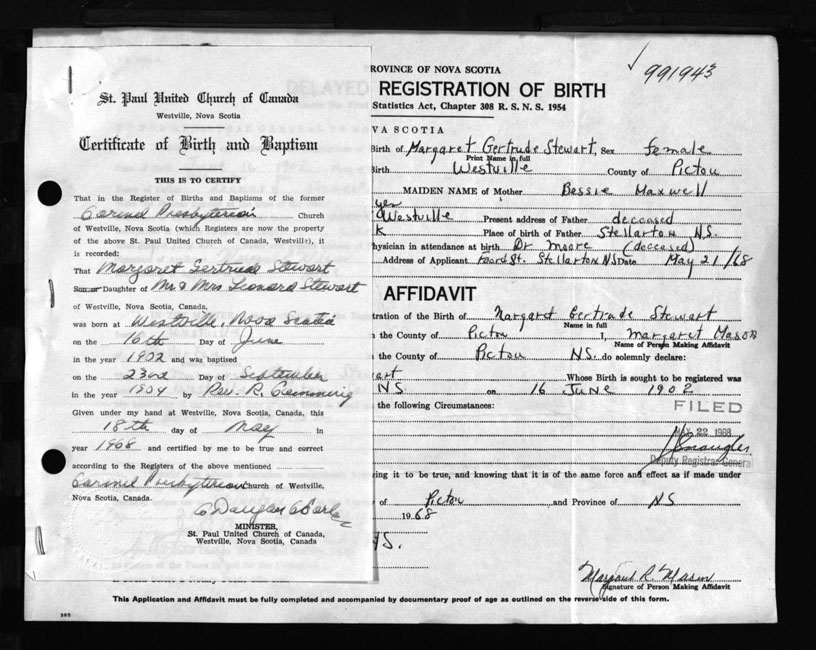 St. Paul United Church of Canada
Westville, Nova Scotia
Certificate of Birth and Baptism
THIS IS TO CERTIFY
That in the Register of Births and Baptisms of the former
Carmel Presbyterian Church
of Westville, Nova Scotia (which Registers are now the property
of the above St. Paul United Church of Canada, Westville), it
is recorded:
That Margaret Gertrude Stewart
Son or Daughter of Mr & Mrs Leonard Stewart
of Westville, Nova Scotia, Canada,
was born at Westville, Nova Scotia
on the 16th Day of June
in the year 1902 and was baptised
on the 23rd Day of September
in the year 1904 by Rev. R. Cumming
Given under my hand at Westville, Nova Scotia, Canada, this
18th day of May in
year 1968 and certified by me to be true and correct
according to the Registers of the above mentioned
Carmel Presbyterian Church of Westville,
Nova Scotia, Canada.
MINISTER,
St. Paul United Church of Canada,
Westville, Nova Scotia, Canada
991943
ROVINCE OF NOVA SCOTIA
DELAYED REGISTRATION OF BIRTH
Statistics Act, Chapter 308 R. S. N. S. 1954
VA SCOTIA
Birth of Margaret Gertrude Stewart, Sex female
Print Name in full
Birth Westville County of Pictou
MAIDEN NAME of Mother Bessie Maxwell
Westville Present address of Father deceased
K Place of birth of Father Stellarton NS.
hysician in attendance at birth Dr Moore (deceased)
Address of Applicant St. Stellarton NS Date May 21/68
AFFIDAVIT
tration of the Birth of Margaret Gertrude Stewart
Name in full
the County of Pictou I, Margaret Mason
Name of Person Making Affidavit
the County of Pictou NS. do solemnly declare:
art Whose Birth is sought to be registered was
NS on 16 June 1902
the following Circumstances:
FILED
MAY 22 1968
Deputy Registrar General
ving it to be true, and knowing that it is of the same force and effect as if made under
of Pictou, and Province of NS
1968
NS.
Margaret R. Mason
Signature of Person Making Affidavit
This Application and Affidavit must be fully completed and accompanied by documentary proof of age as outlined on the reverse side of this form.